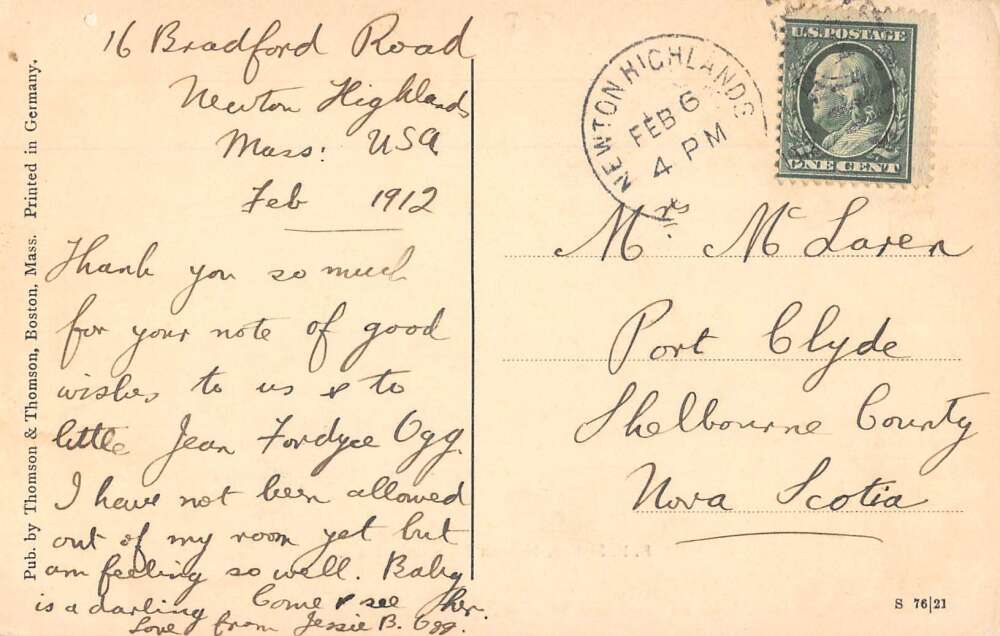 16 Bradford Road
Newton Highlands
Mass: USA
Feb 1912
Thank you so much
for your note of good
wishes to us & to
little Jean Fordyce Ogg.
I have not been allowed
out of my room yet but
am feeling so well. Baby
is a darling Come & see her.
Love from Jessie B. Ogg.
Pub. by Thomson & Thomson, Boston, Mass. Printed in Germany.
NEWTON HIGHLANDS
FEB 6
4 PM
U.S. POSTAGE
ONE CENT
Mrs McLaren
Port Clyde
Shelbourne County
Nova Scotia
S 76|21